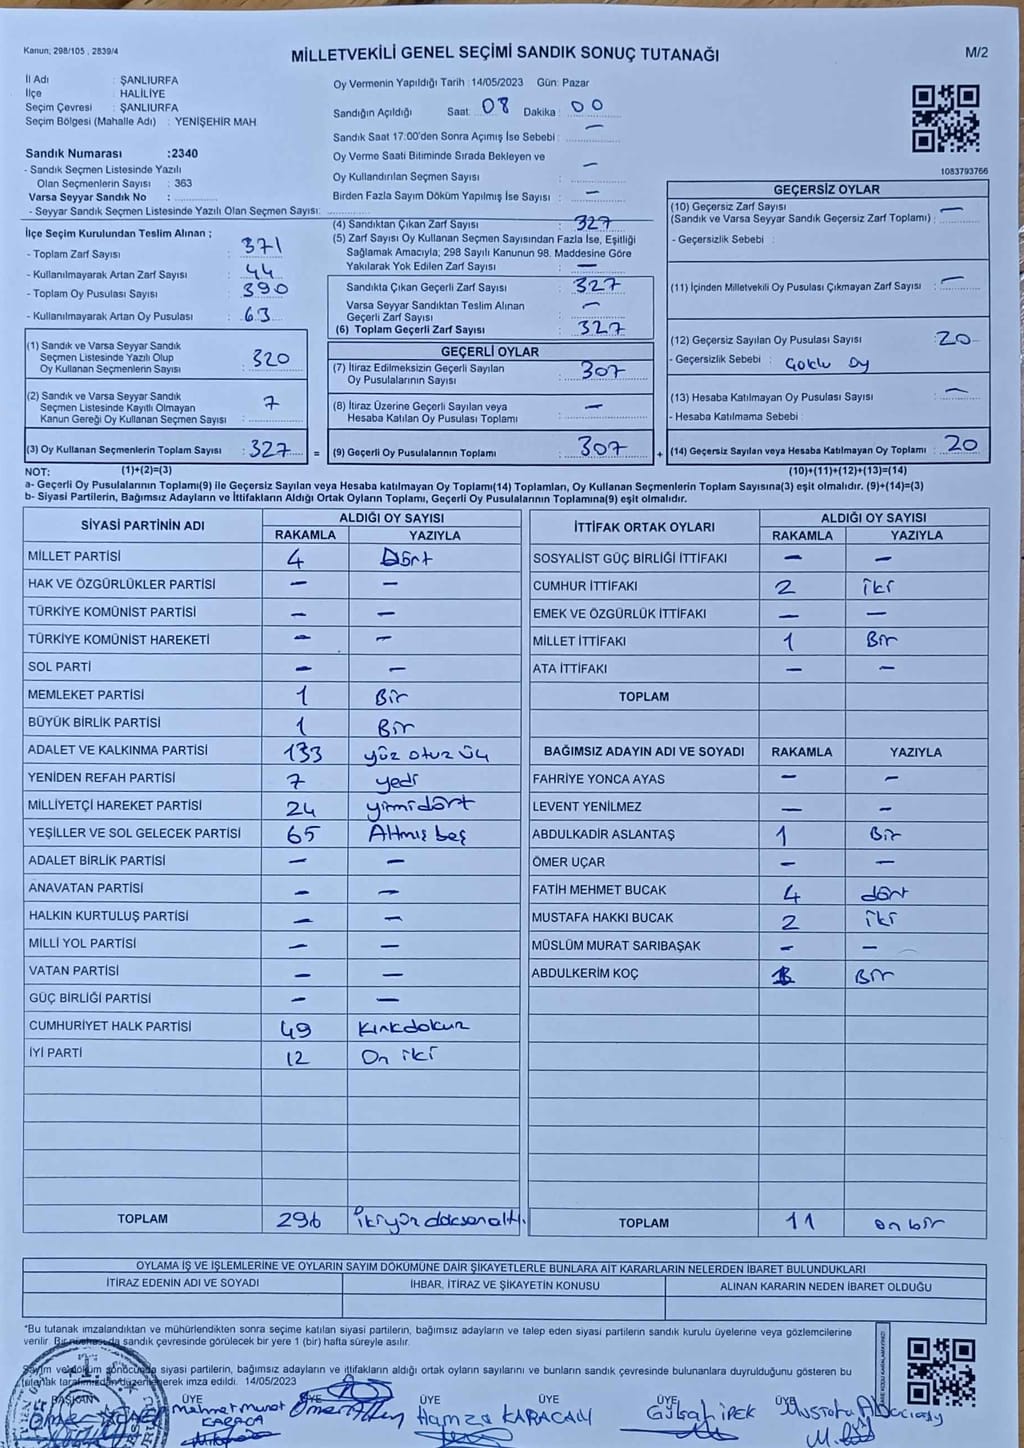 Kanun, 298/105 , 2839/4
MİLLETVEKİLİ GENEL SEÇİMİ SANDIK SONUÇ TUTANAĞI
M/2
İl Adı : ŞANLIURFA
İlçe : HALİLİYE
Seçim Çevresi : ŞANLIURFA
Seçim Bölgesi (Mahalle Adı) : YENİŞEHİR MAH
Sandık Numarası :2340
- Sandık Seçmen Listesinde Yazılı
Olan Seçmenlerin Sayısı : 363
Varsa Seyyar Sandık No :
- Seyyar Sandık Seçmen Listesinde Yazılı Olan Seçmen Sayısı:
Oy Vermenin Yapıldığı Tarih : 14/05/2023 Gün: Pazar
Sandığın Açıldığı Saat: 08 Dakika : 00
Sandık Saat 17:00'den Sonra Açımış İse Sebebi : —
Oy Verme Saati Bitiminde Sırada Bekleyen ve
Oy Kullandırılan Seçmen Sayısı : —
Birden Fazla Sayım Döküm Yapılmış İse Sayısı : —
1083793766
İlçe Seçim Kurulundan Teslim Alınan ;
- Toplam Zarf Sayısı : 371
- Kullanılmayarak Artan Zarf Sayısı : 44
- Toplam Oy Pusulası Sayısı : 390
- Kullanılmayarak Artan Oy Pusulası : 63
(1) Sandık ve Varsa Seyyar Sandık
Seçmen Listesinde Yazılı Olup
Oy Kullanan Seçmenlerin Sayısı : 320
(2) Sandık ve Varsa Seyyar Sandık
Seçmen Listesinde Kayıtlı Olmayan
Kanun Gereği Oy Kullanan Seçmen Sayısı : 7
(3) Oy Kullanan Seçmenlerin Toplam Sayısı : 327 =
(4) Sandıktan Çıkan Zarf Sayısı : 327
(5) Zarf Sayısı Oy Kullanan Seçmen Sayısından Fazla İse, Eşitliği
Sağlamak Amacıyla; 298 Sayılı Kanunun 98. Maddesine Göre
Yakılarak Yok Edilen Zarf Sayısı : —
Sandıkta Çıkan Geçerli Zarf Sayısı : 327
Varsa Seyyar Sandıktan Teslim Alınan
Geçerli Zarf Sayısı : —
(6) Toplam Geçerli Zarf Sayısı : 327
GEÇERLİ OYLAR
(7) İtiraz Edilmeksizin Geçerli Sayılan
Oy Pusulalarının Sayısı : 307
(8) İtiraz Üzerine Geçerli Sayılan veya
Hesaba Katılan Oy Pusulası Toplamı : —
(9) Geçerli Oy Pusulalarının Toplamı : 307 +
GEÇERSİZ OYLAR
(10) Geçersiz Zarf Sayısı
(Sandık ve Varsa Seyyar Sandık Geçersiz Zarf Toplamı) : —
- Geçersizlik Sebebi :
(11) İçinden Milletvekili Oy Pusulası Çıkmayan Zarf Sayısı : —
(12) Geçersiz Sayılan Oy Pusulası Sayısı : 20
- Geçersizlik Sebebi : Çoklu oy
(13) Hesaba Katılmayan Oy Pusulası Sayısı : —
- Hesaba Katılmama Sebebi :
(14) Geçersiz Sayılan veya Hesaba Katılmayan Oy Toplamı : 20
NOT: (1)+(2)=(3) (10)+(11)+(12)+(13)=(14)
a- Geçerli Oy Pusulalarının Toplamı(9) ile Geçersiz Sayılan veya Hesaba katılmayan Oy Toplamı(14) Toplamları, Oy Kullanan Seçmenlerin Toplam Sayısına(3) eşit olmalıdır. (9)+(14)=(3)
b- Siyasi Partilerin, Bağımsız Adayların ve İttifakların Aldığı Ortak Oyların Toplamı, Geçerli Oy Pusulalarının Toplamına(9) eşit olmalıdır.
SİYASİ PARTİNİN ADI ALDIĞI OY SAYISI
RAKAMLA YAZIYLA
MİLLET PARTİSİ 4 Dört
HAK VE ÖZGÜRLÜKLER PARTİSİ — —
TÜRKİYE KOMÜNİST PARTİSİ — —
TÜRKİYE KOMÜNİST HAREKETİ — —
SOL PARTİ — —
MEMLEKET PARTİSİ 1 Bir
BÜYÜK BİRLİK PARTİSİ 1 Bir
ADALET VE KALKINMA PARTİSİ 133 yüz otuz üç
YENİDEN REFAH PARTİSİ 7 yedi
MİLLİYETÇİ HAREKET PARTİSİ 24 yirmidört
YEŞİLLER VE SOL GELECEK PARTİSİ 65 Altmış beş
ADALET BİRLİK PARTİSİ — —
ANAVATAN PARTİSİ — —
HALKIN KURTULUŞ PARTİSİ — —
MİLLİ YOL PARTİSİ — —
VATAN PARTİSİ — —
GÜÇ BİRLİĞİ PARTİSİ — —
CUMHURİYET HALK PARTİSİ 49 Kırkdokuz
İYİ PARTİ 12 On iki
TOPLAM 296 ikiyüz doksanaltı.
İTTİFAK ORTAK OYLARI ALDIĞI OY SAYISI
RAKAMLA YAZIYLA
SOSYALİST GÜÇ BİRLİĞİ İTTİFAKI — —
CUMHUR İTTİFAKI 2 iki
EMEK VE ÖZGÜRLÜK İTTİFAKI — —
MİLLET İTTİFAKI 1 Bir
ATA İTTİFAKI — —
TOPLAM
BAĞIMSIZ ADAYIN ADI VE SOYADI RAKAMLA YAZIYLA
FAHRİYE YONCA AYAS — —
LEVENT YENİLMEZ — —
ABDULKADİR ASLANTAŞ 1 Bir
ÖMER UÇAR — —
FATİH MEHMET BUCAK 4 dört
MUSTAFA HAKKI BUCAK 2 iki
MÜSLÜM MURAT SARIBAŞAK — —
ABDULKERİM KOÇ 1 Bir
TOPLAM 11 on bir
OYLAMA İŞ VE İŞLEMLERİNE VE OYLARIN SAYIM DÖKÜMÜNE DAİR ŞİKAYETLERLE BUNLARA AİT KARARLARIN NELERDEN İBARET BULUNDUKLARI
İTİRAZ EDENİN ADI VE SOYADI İHBAR, İTİRAZ VE ŞİKAYETİN KONUSU ALINAN KARARIN NEDEN İBARET OLDUĞU
"Bu tutanak imzalandıktan ve mühürlendikten sonra seçime katılan siyasi partilerin, bağımsız adayların ve talep eden siyasi partilerin sandık kurulu üyelerine veya gözlemcilerine
verilir. Bir nüshası da sandık çevresinde görülecek bir yere 1 (bir) hafta süreyle asılır.
Sayım ve döküm sonucunda siyasi partilerin, bağımsız adayların ve ittifakların aldığı ortak oyların sayılarını ve bunların sandık çevresinde bulunanlara duyrulduğunu gösteren bu
tutanak tarafımızdan düzenlenerek imza edildi. 14/05/2023
BAŞKAN ÜYE ÜYE ÜYE ÜYE ÜYE ÜYE
Mehmet Murat KARACA Hamza KARACALI Gülşah İPEK Mustafa